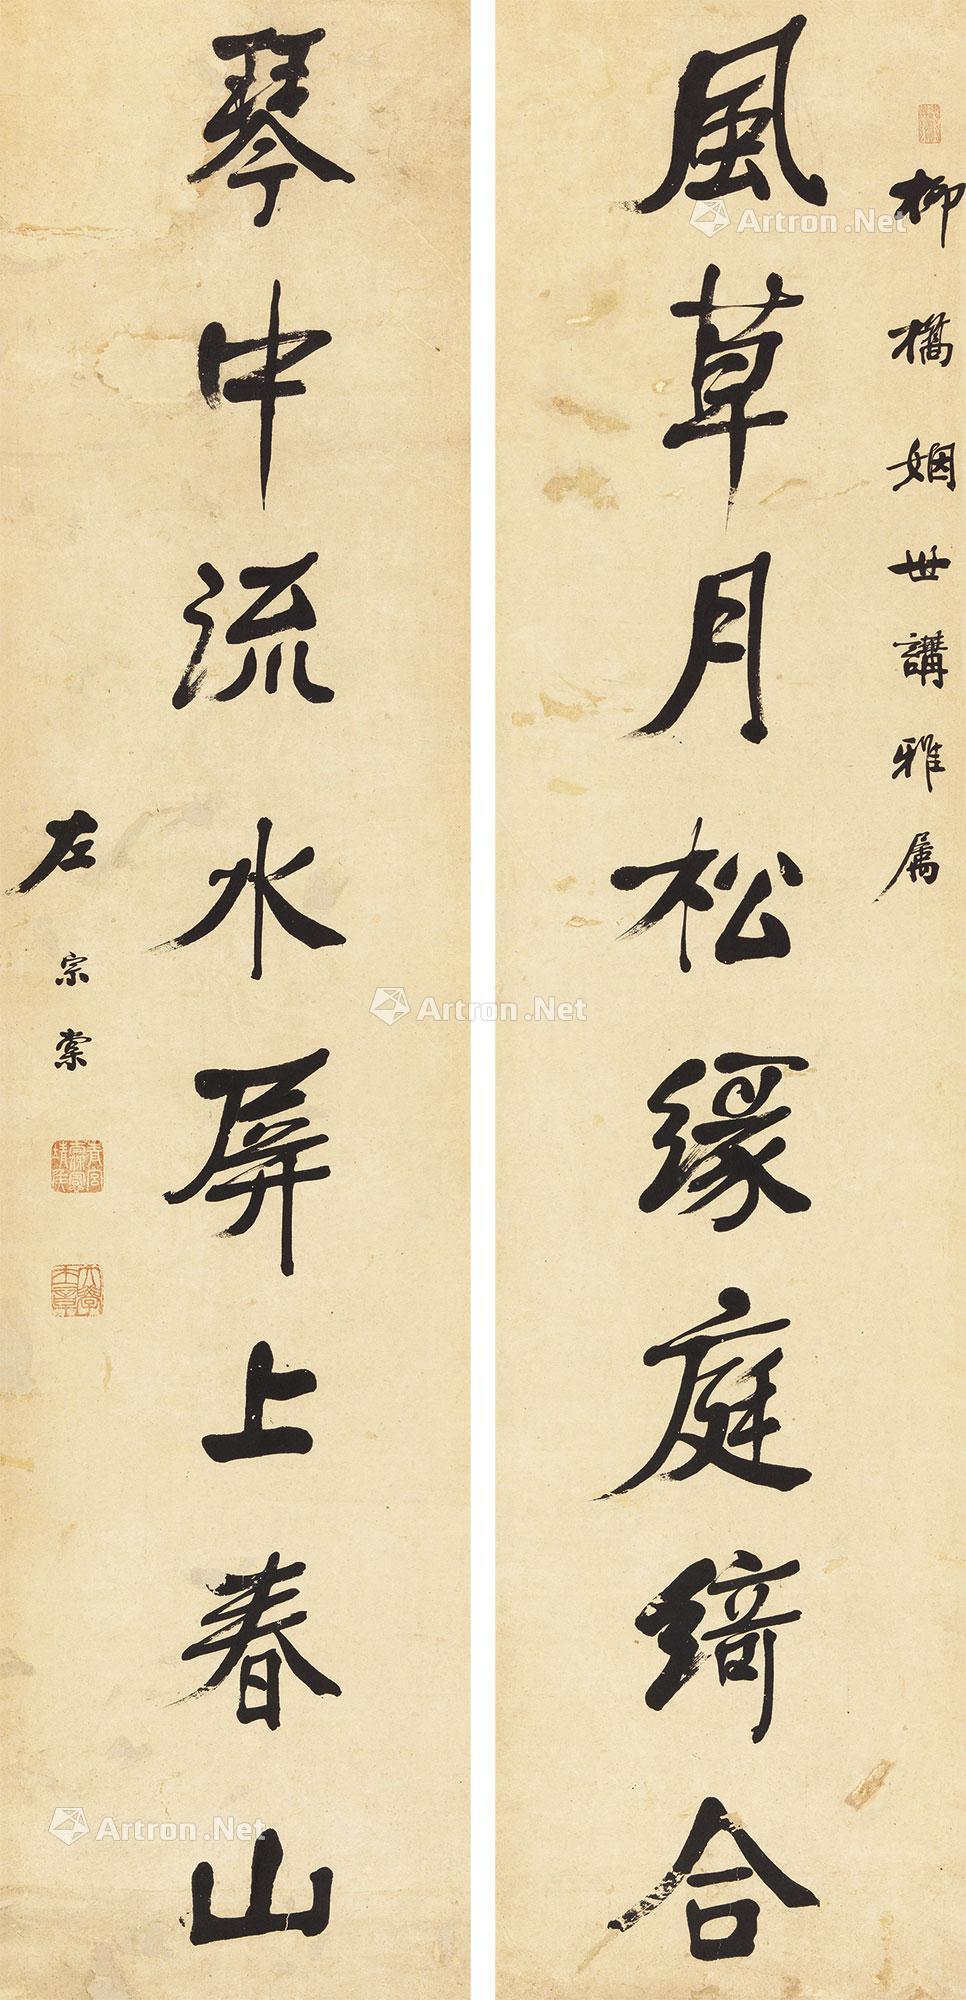 柳橋姻世講雅属
風草月松緣庭綺合
琴中流水屏上春山
左宗棠
Artron.Net
Artron.Net
Artron.Net